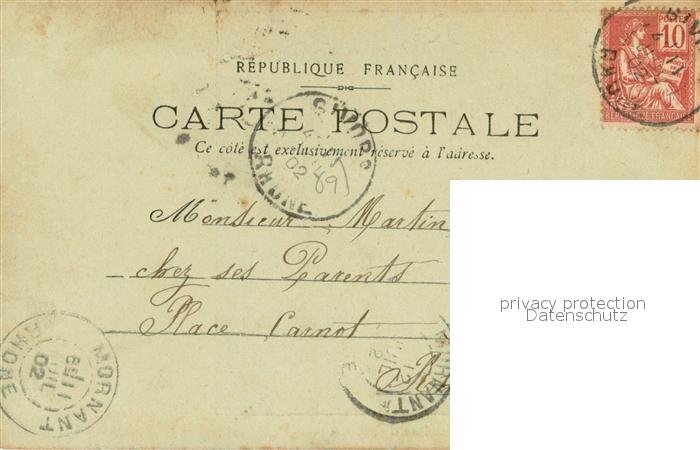 RÉPUBLIQUE FRANÇAISE
POSTES
10
RÉPUBLIQUE FRANÇAISE
CARTE POSTALE
Ce côté est exclusivement réservé à l'adresse.
GIVORS
02
RHONE
Monsieur Martin
chez ses Parents
Place Carnot
MORNANT
11
JUIL
02
RHONE
MORNANT
privacy protection
Datenschutz